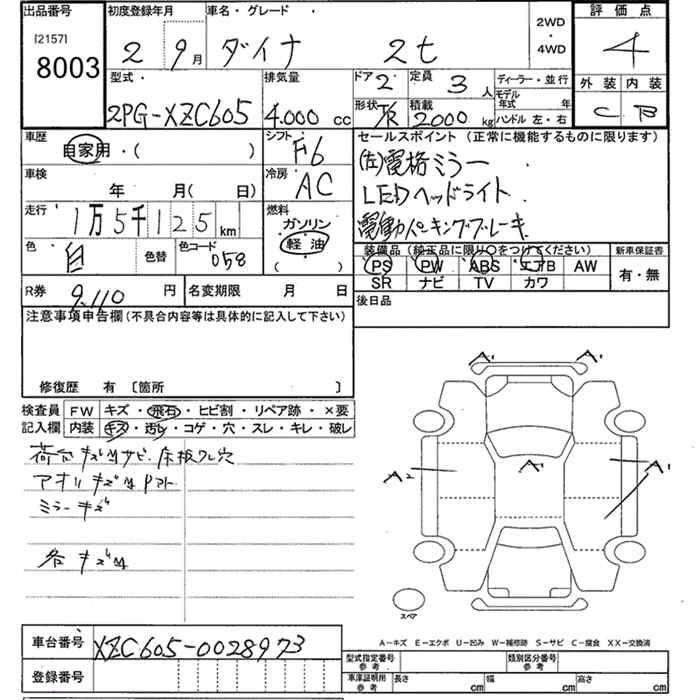 出品番号 初度登録年月 車名・グレード・ 2WD・4WD 評価点
[2157] 8003 2 9月 ダイナ 2t 4
型式・ 排気量 ドア 2 定員 3 人 ディーラー・並行 外装 内装
2PG-XZC605 4.000 cc 形状 T/R 積載 2000 kg モデル年式 年 ハンドル 左・右 C B
車歴 自家用・( ) シフト・ F6 セールスポイント (正常に機能するものに限ります)
(左)電格ミラー
車検 年 月( 日) 冷房 AC LEDヘッドライト
走行 1万5千125 km 燃料 ガソリン 軽油 ( ) 電動パーキングブレーキ
色 白 色替 色コード 058 装備品 (純正品に限り○をつけてください) 新車保証書
PS PW ABS エアB AW 有・無
SR ナビ TV カワ
R券 9.110 円 名変期限 月 日 後日品
注意事項申告欄 (不具合内容等は具体的に記入して下さい)
修復歴 有 〔箇所 〕
検査員 FW キズ・飛石・ヒビ割・リペア跡・×要
記入欄 内装 キズ・汚レ・コゲ・穴・スレ・キレ・破レ
荷台キズ サビ 床板ワレ穴
アオリ キズ
ミラーキズ
各キズ
A' A'
A2 A' A'
スペア
A-キズ E-エクボ U-凹み W-補修跡 S-サビ C-腐食 XX-交換済
車台番号 XZC605-0028973 型式指定番号 参考 類別区分番号 参考
登録番号 車庫証明用 参考 長さ cm 幅 cm 高さ cm